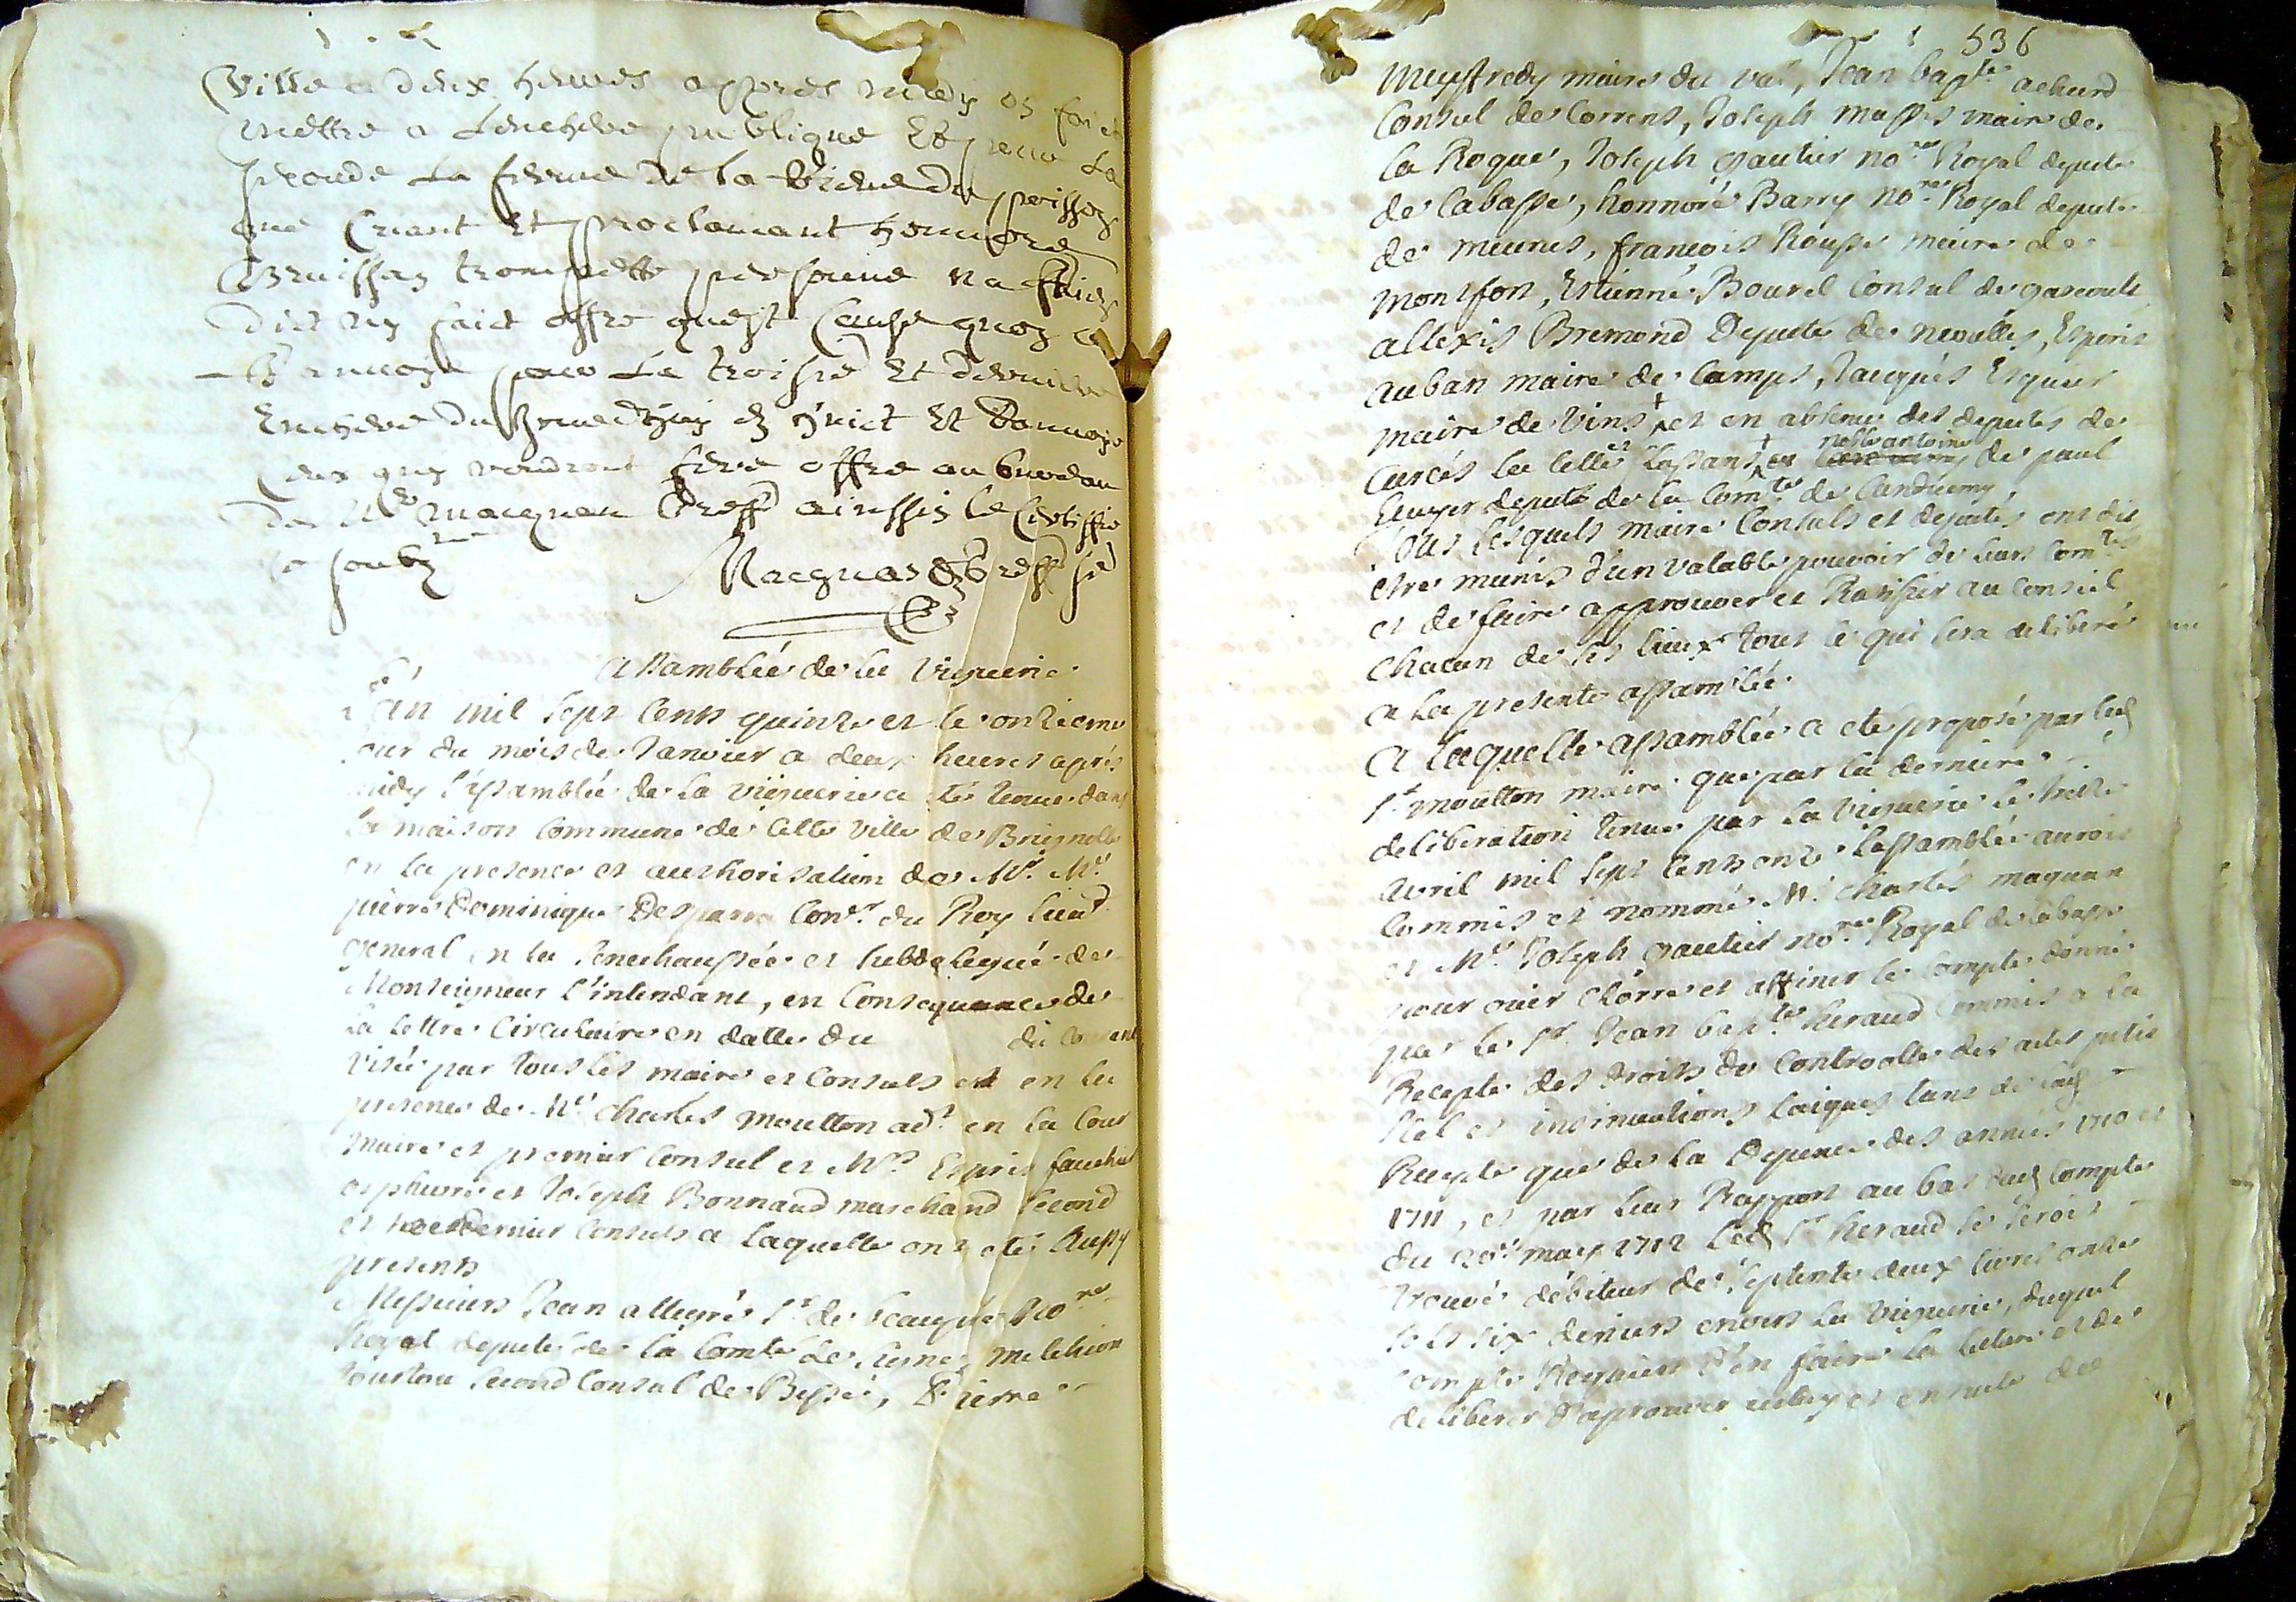 ville a deux heures appres midy on faict
mettre a lenchere publique et pour la
seconde la ferme de la du poisson
que criant et proclamant honnoré
trompette personne na
dict ny faict offre quest cause quon
renvoyé pour le troisie et derniere
enchere du jourdhuy en huict et
ceux quy voudront fere offre au bureau
de Me Maquan greff ainssin le certiffie
soubz
Maquan greff
Assamblée de la viguerie
L'an mil sept cents quinze et le onzieme
jour du mois de Janvier a deux heures aprés
midy l'assamblée de la viguerie a eté tenue dans
la maison commune de cette ville de Brignolle
en la presence et authorisation de Mr. Me.
pierre Dominique Desparra Coner. du Roy lieut.
general en la senechaussée et subdelegué de
Monseigneur l'intendant, en consequence de
la lettre circulaire en datte du du courant
visée par tous les maires et consuls et en la
presence de Me. Charles Moutton adt. en la cour
maire et premier consul et Mrs. Esprit fauchier
orphevre et Joseph Bonnaud marchand second
et dernier consuls a laquelle ont eté aussy
presents
Messieurs Jean allegre Sr. de beauplé Nore
Royal deputé de la Comté de Melchion
second consul de Besse, Pierre
536
meyffredy maire du val, Jean bapte achard
Consul de Correns, Joseph masse maire de
la Roque, Joseph gautier nore Royal deputé
de Cabasse, honnoré Barry nore. Royal deputé
de meunes, francois Rouse maire de
monfort, Estienne Bourel consul de gareoult
allexis Bremond deputé de neoulles, Esprit
auban maire de Camps, Jacques Esquier
maire de Vins et en absence des deputés de
Carcés la celle Lassans et noble antoine de paul
Ecuyer deputé de la Comté de Candumy,
Tous lesquels maire Consuls et deputés ont dit
etre munis d'un valable pouvoir de leurs Comtés
et de faire approuver et Ratifier au Conseil
chacun de ses lieux tout ce qui sera deliberé
a la presente assamblée.
A laquelle assamblée a eté proposé par led
Sr. moutton maire que par la derniere
deliberation tenue par la viguerie le treze
avril mil sept cents onze l'assamblée auroit
Commis et nommé Me. charles maquan
et Me. Joseph gautier nore Royal de Cabasse
pour ouir clorre et affiner le compte donné
par le Sr. Jean bapte heraud Commis a la
Recepte des droits de Controolle des actes petit
scel et insinuations laiques tant de lad
Recepte que de la depence des années 1710 et
1711, et par leur Rapport au bas dud compte
du 20e may 1712 led Sr heraud se seroit
trouvé débiteur de septente deux livres onze
sols six deniers envers la viguerie, duquel
compte Requiert d'en faire la lecture et de
deliberer d'aprouver iceluy et ensuite de